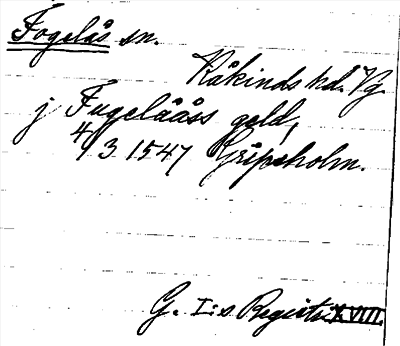 Fogelås sn.
Kåkinds hd. Vg.
j Fugelååss geld,
4/3 1547 Gripsholm.
G. I:s Registr. XVIII.